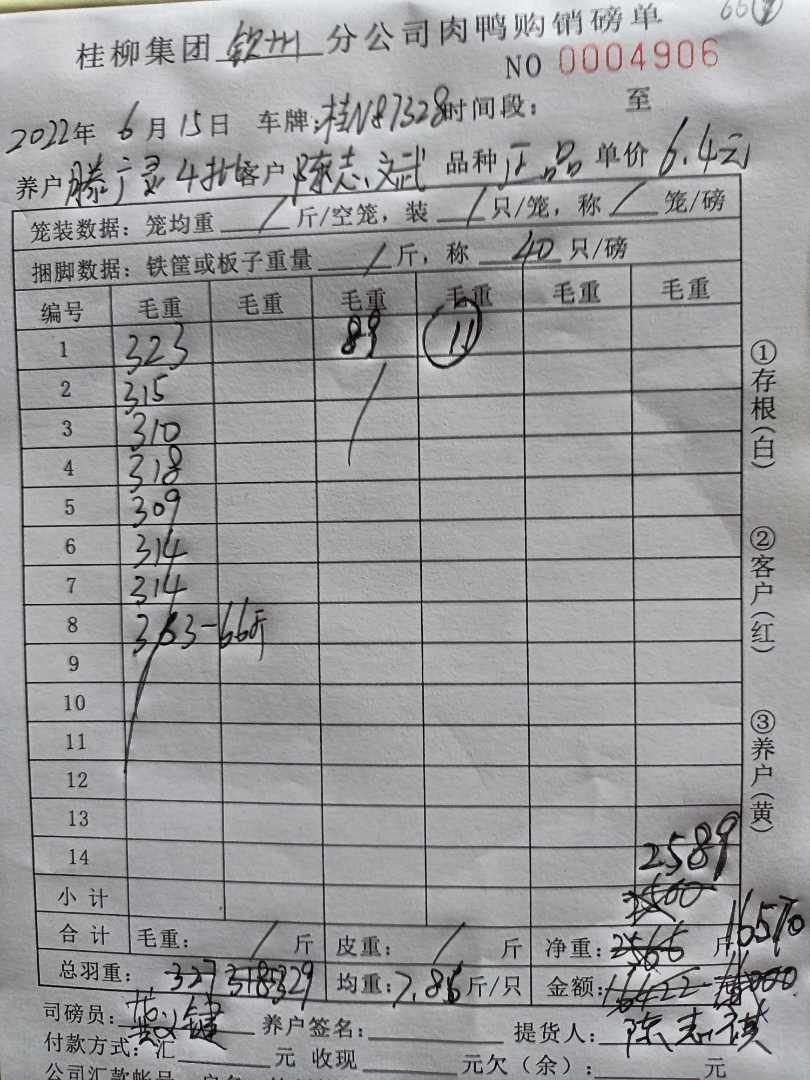 桂柳集团钦州分公司肉鸭购销磅单
NO 0004906
2022年6月15日 车牌:桂N87328时间段: 至
养户滕广灵4批客户陈志文武 品种正品单价6.4元
笼装数据: 笼均重/斤/空笼, 装/只/笼, 称/笼/磅
捆脚数据: 铁筐或板子重量/斤, 称40只/磅
编号 毛重 毛重 毛重 毛重 毛重 毛重
1 323 89 11
2 315
3 310
4 318
5 309
6 314
7 314
8 363-66斤
9
10
11
12
13
14 2589
小计 2560
合计 毛重: / 斤 皮重: / 斤 净重: 2566 斤 16570
总羽重: 327 318 329 均重: 7.86斤/只 金额: 16422
司磅员: 养户签名: 提货人: 陈志祺
付款方式: 汇 元 收现 元欠(余): 元
公司汇款帐号
①存根(白)
②客户(红)
③养户(黄)